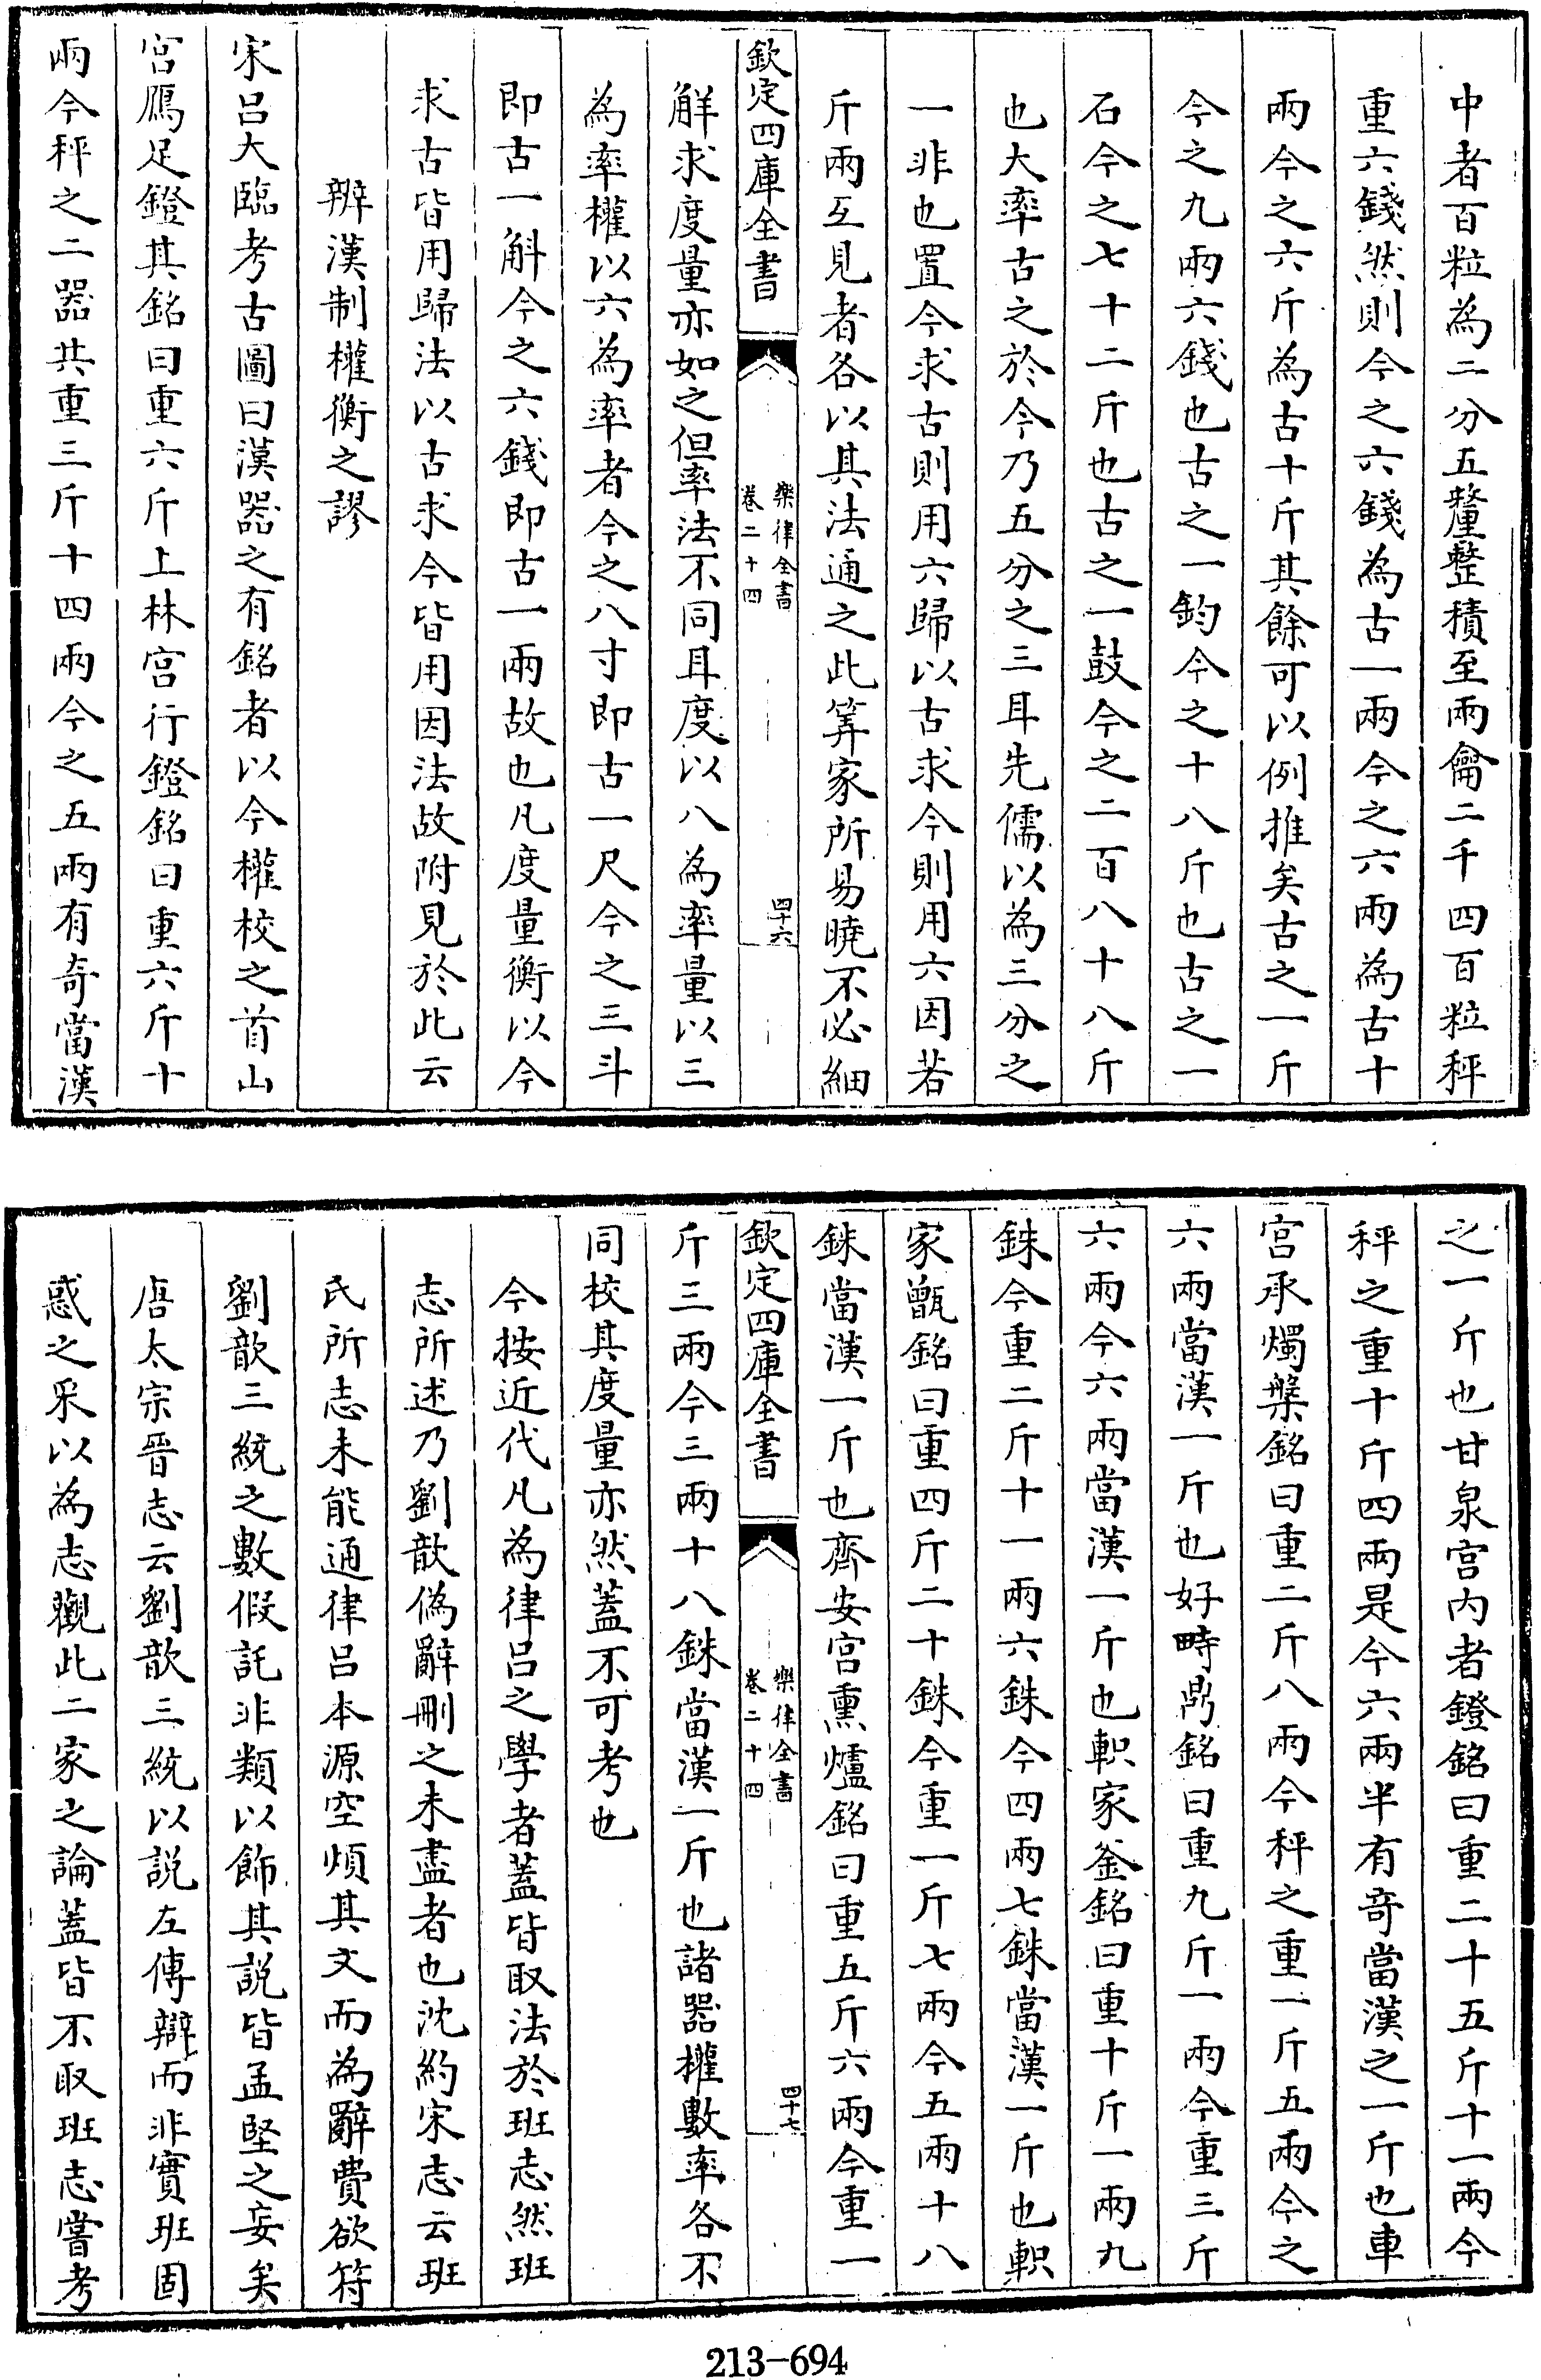 中者百粒為二分五釐整積至兩龠二千四百粒秤
重六錢然則今之六錢為古一兩今之六兩為古十
兩今之六斤為古十斤其餘可以例推矣古之一斤
今之九兩六錢也古之一鈞今之十八斤也古之一
石今之七十二斤也古之一鼓今之二百八十八斤
也大率古之於今乃五分之三耳先儒以為三分之
一非也置今求古則用六歸以古求今則用六因若
斤兩互見者各以其法通之此筭家所易曉不必細
欽定四庫全書
樂律全書
卷二十四
四十六
觧求度量亦如之但率法不同耳度以八為率量以三
為率權以六為率者今之八寸即古一尺今之三斗
即古一斛今之六錢即古一兩故也凡度量衡以今
求古皆用歸法以古求今皆用因法故附見於此云
辨漢制權衡之謬
宋吕大臨考古圖曰漢器之有銘者以今權校之首山
宫鴈足鐙其銘曰重六斤上林宫行鐙銘曰重六斤十
兩今秤之二器共重三斤十四兩今之五兩有奇當漢
之一斤也甘泉宫内者鐙銘曰重二十五斤十一兩今
秤之重十斤四兩是今六兩半有奇當漢之一斤也車
宫承燭槃銘曰重二斤八兩今秤之重一斤五兩今之
六兩當漢一斤也好畤鼎銘曰重九斤一兩今重三斤
六兩今六兩當漢一斤也軹家釜銘曰重十斤一兩九
銖今重二斤十一兩六銖今四兩七銖當漢一斤也軹
家甑銘曰重四斤二十銖今重一斤七兩今五兩十八
銖當漢一斤也齊安宫熏爐銘曰重五斤六兩今重一
欽定四庫全書
樂律全書
卷二十四
四十七
斤三兩今三兩十八銖當漢一斤也諸器權數率各不
同校其度量亦然蓋不可考也
今按近代凡為律吕之學者蓋皆取法於班志然班
志所述乃劉歆偽辭刪之未盡者也沈約宋志云班
氏所志未能通律吕本源空煩其文而為辭費欲符
劉歆三統之數假託非類以飾其説皆孟堅之妄矣
唐太宗晉志云劉歆三統以説左傳辯而非實班固
惑之采以為志觀此二家之論蓋皆不取班志嘗考
213-694